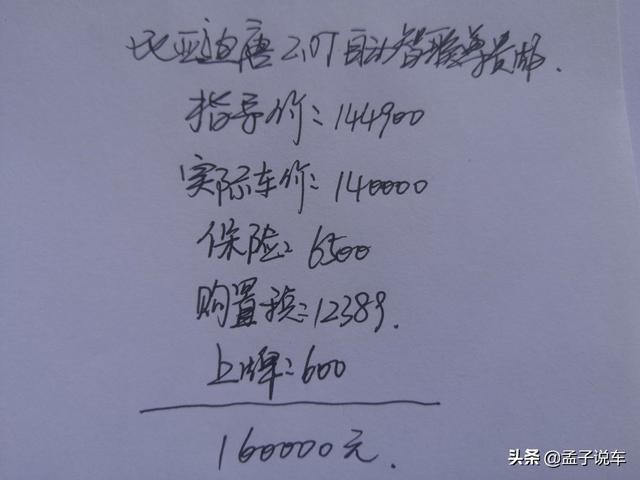 比亚迪唐2.0T自动智联尊贵邯.
指导价:144900
实际车价:140000
保险:6500
购置税:12389.
上牌:600
160000元.
头条 @孟子说车